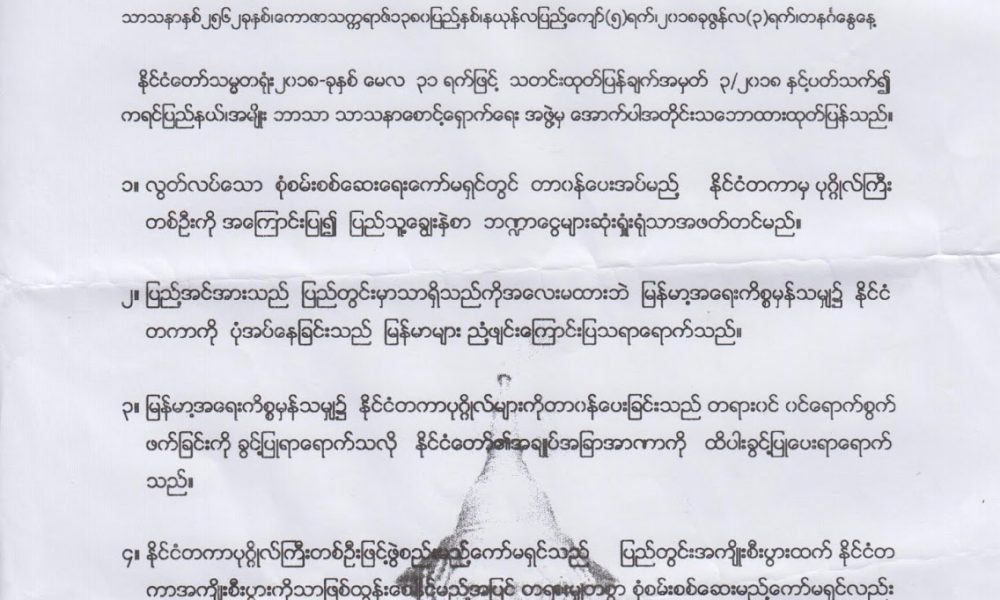 သာသနာနှစ်၂၅၆၂ခုနှစ်၊ကောဇာသက္ကရာဇ်၁၃၈၀ပြည့်နှစ်၊နယုန်လပြည့်ကျော်(၅)ရက်၊၂၀၁၈ခုဇွန်လ(၃)ရက်၊တနင်္ဂနွေနေ့
နိုင်ငံတော်သမ္မတရုံး၂၀၁၈-ခုနှစ် မေလ ၃၁ ရက်ဖြင့် သတင်းထုတ်ပြန်ချက်အမှတ် ၃/၂၀၁၈ နှင့်ပတ်သက်၍
ကရင်ပြည်နယ်၊အမျိုး ဘာသာ သာသနာစောင့်ရှောက်ရေး အဖွဲ့မှ အောက်ပါအတိုင်းသဘောထားထုတ်ပြန်သည်။
၁။ လွတ်လပ်သော စုံစမ်းစစ်ဆေးရေးကော်မရှင်တွင် တာဝန်ပေးအပ်မည့် နိုင်ငံတကာမှ ပုဂ္ဂိုလ်ကြီး
တစ်ဦးကို အကြောင်းပြု၍ ပြည်သူ့ချွေးနှဲစာ ဘဏ္ဍာငွေများဆုံးရှုံးရုံသာအဖတ်တင်မည်။
၂။ ပြည့်အင်အားသည် ပြည်တွင်းမှာသာရှိသည်ကိုအလေးမထားဘဲ မြန်မာ့အရေးကိစ္စမှန်သမျှ၌ နိုင်ငံ
တကာကို ပုံအပ်နေခြင်းသည် မြန်မာများ ညံ့ဖျင်းကြောင်းပြသရာရောက်သည်။
၃။ မြန်မာ့အရေးကိစ္စမှန်သမျှ၌ နိုင်ငံတကာပုဂ္ဂိုလ်များကိုတာဝန်ပေးခြင်းသည် တရားဝင် ဝင်ရောက်စွက်
ဖက်ခြင်းကို ခွင့်ပြုရာရောက်သလို နိုင်ငံတော်၏အချုပ်အခြာအာဏာကို ထိပါးခွင့်ပြုပေးရာရောက်
သည်။
၄။ နိုင်ငံတကာပုဂ္ဂိုလ်ကြီးတစ်ဦးဖြင့်ဖွဲ့စည်းမည့်ကော်မရှင်သည် ပြည်တွင်းအကျိုးစီးပွားထက် နိုင်ငံတ
ကာအကျိုးစီးပွားကိုသာဖြစ်ထွန်းစေနိုင်မည့်အပြင် တရားမျှတစွာ စုံစမ်းစစ်ဆေးမည့်ကော်မရှင်လည်း